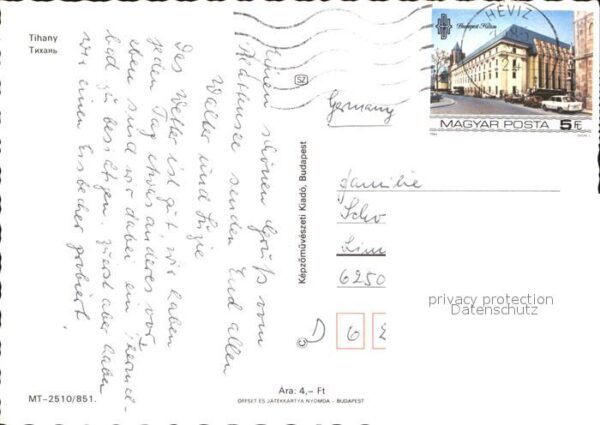 Tihany
Тихань
Einen schönen Gruß vom
Plattensee senden Euch allen
Walter und Luzie
Das Wetter ist gut, wir haben
jeden Tag etwas anderes vor!
eben sind wir dabei ein Thermal-
bad zu besichtigen. Zuerst aber haben
wir einen Eisbecher probiert.
MT-2510/851.
SZ
Képzőművészeti Kiadó, Budapest
©
Ára: 4,– Ft
OFFSET ÉS JÁTÉKKÁRTYA NYOMDA – BUDAPEST
HÉVÍZ
Budapest Hilton
MAGYAR POSTA 5 Ft
Germany
Familie
Sch
Lim
6250
D 6 2
privacy protection
Datenschutz